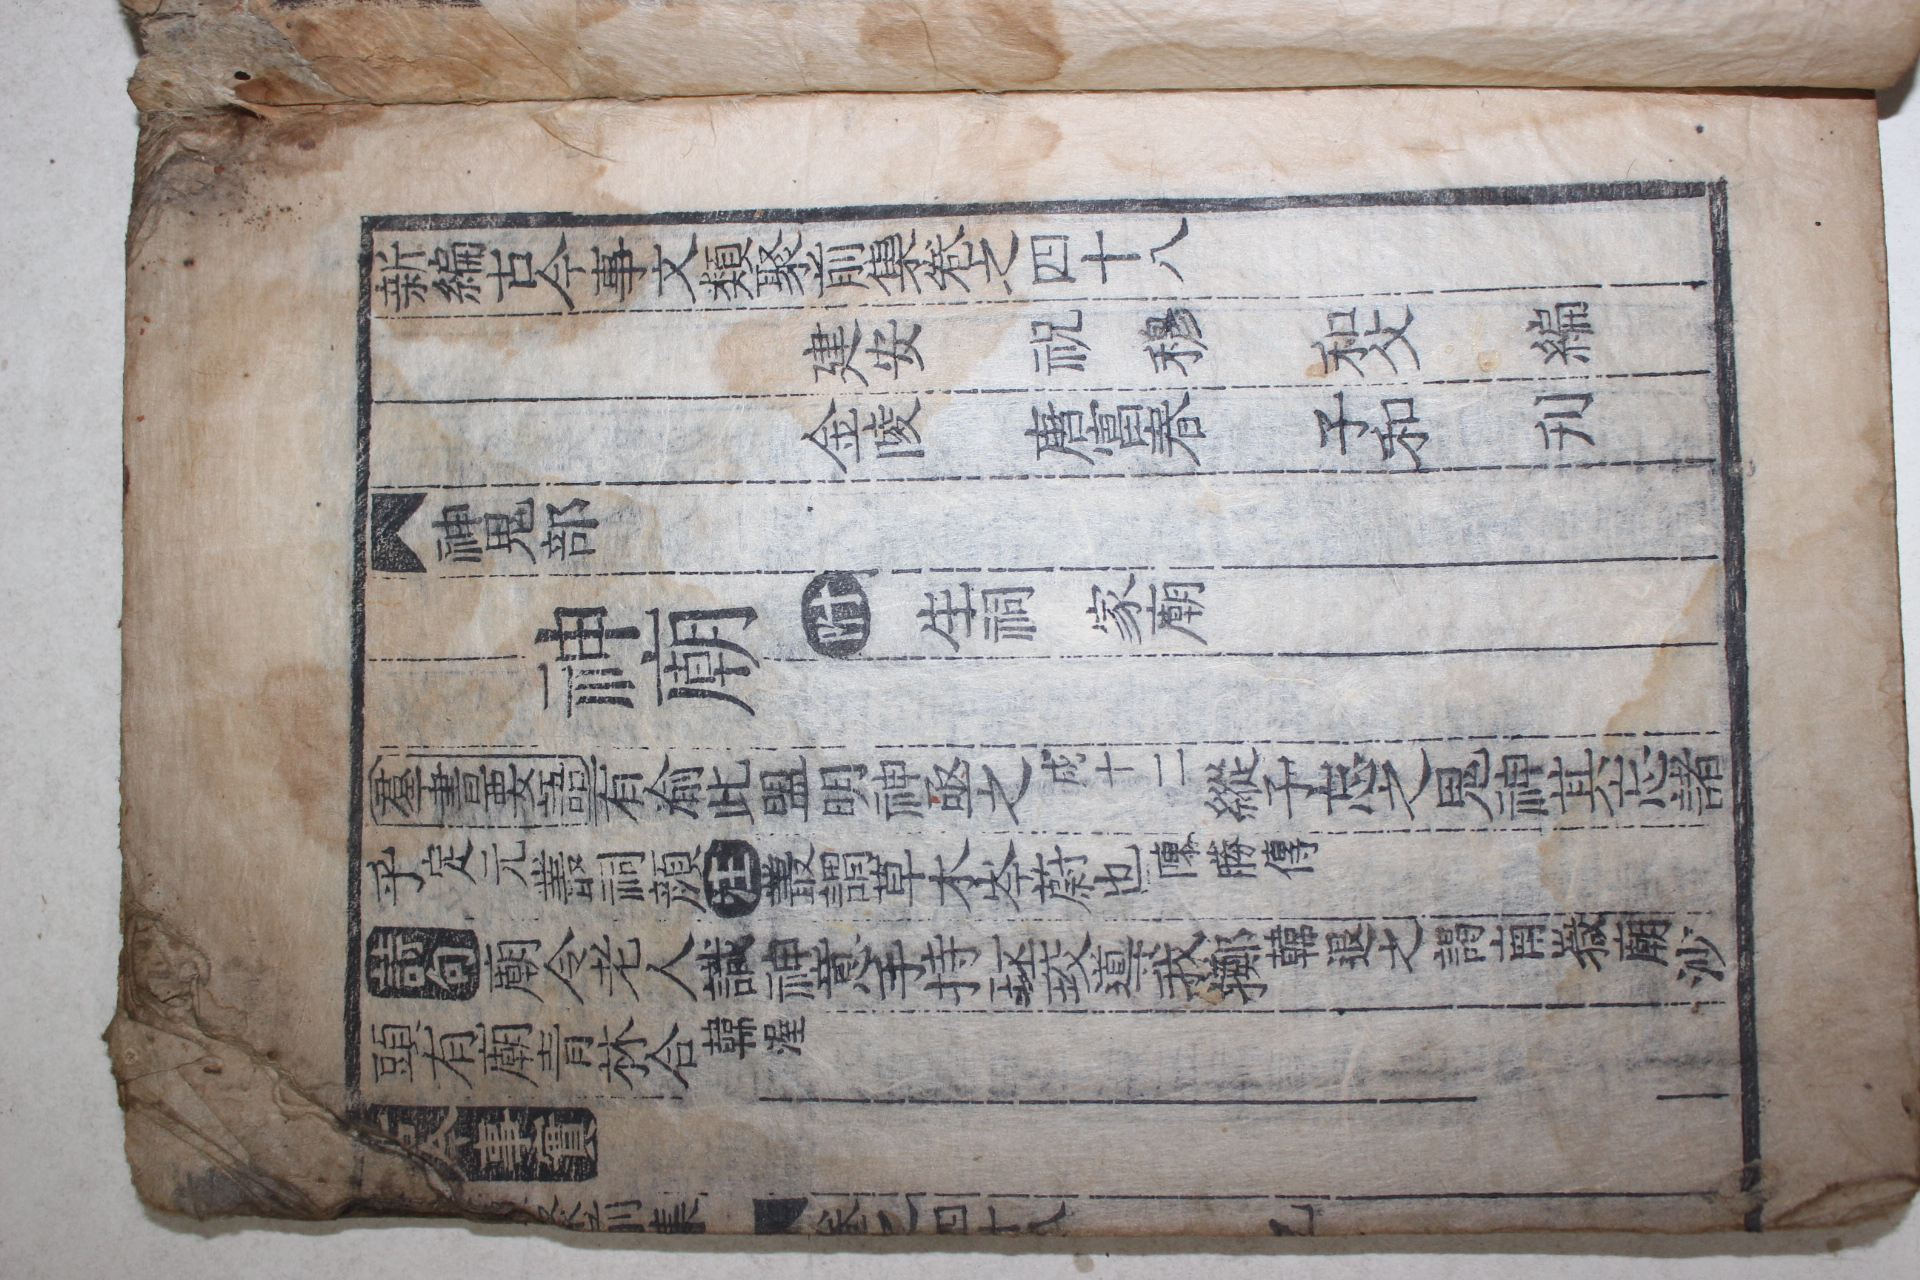 新編古今事文類聚前集卷之四十八
建安 祝 穆 和父 編
金陵 唐富春 子和 刊
神鬼部
神廟 附 生祠 家廟
羣書要語 有渝此盟明神亟之 成十二 縱子忘之鬼神其忘諸
乎 定元 叢祠顔 注 叢謂草木岑蔚也 陳勝傳
詩句 廟令老人識神意手持珓導我擲 韓退之謁南嶽廟 沙
頭有廟青林合 韓渥
古今事實
聚前集 卷之四十八